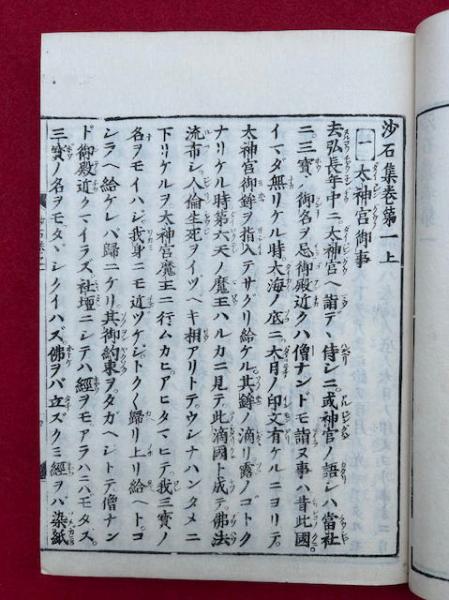 沙石集卷第一上
一 太神宮御事
去弘長年中ニ太神宮ヘ詣デ侍シニ或神官ノ語シハ當社
ニ三寳ノ御名ヲ忌御殿近クハ僧ナンドモ詣ヌ事ハ昔此國
イマダ無リケル時大海ノ底ニ大日ノ印文有ケルニヨリテ
太神宮御鉾ヲ指入テサグリ給ケル其鉾ノ滴リ露ノゴトク
ナリケル時第六天ノ魔王ハルカニ見テ此滴國ト成テ佛法
流布シ人倫生死ヲイヅベキ相アリトテウシナハンタメニ
下リケルヲ太神宮魔王ニ行ムカヒアヒタマヒテ我三寳ノ
名ヲモイハジ我身ニモ近ヅケジトクトク歸リ上リ給ヘトコ
シラヘ給ケレバ歸ニケリ其御約束ヲタガヘジトテ僧ナン
ド御殿近クマイラズ社壇ニシテハ經ヲモアラハニハモタズ
三寳ノ名ヲモタヾシクイハズ佛ヲバ立ズクミ經ヲバ染紙